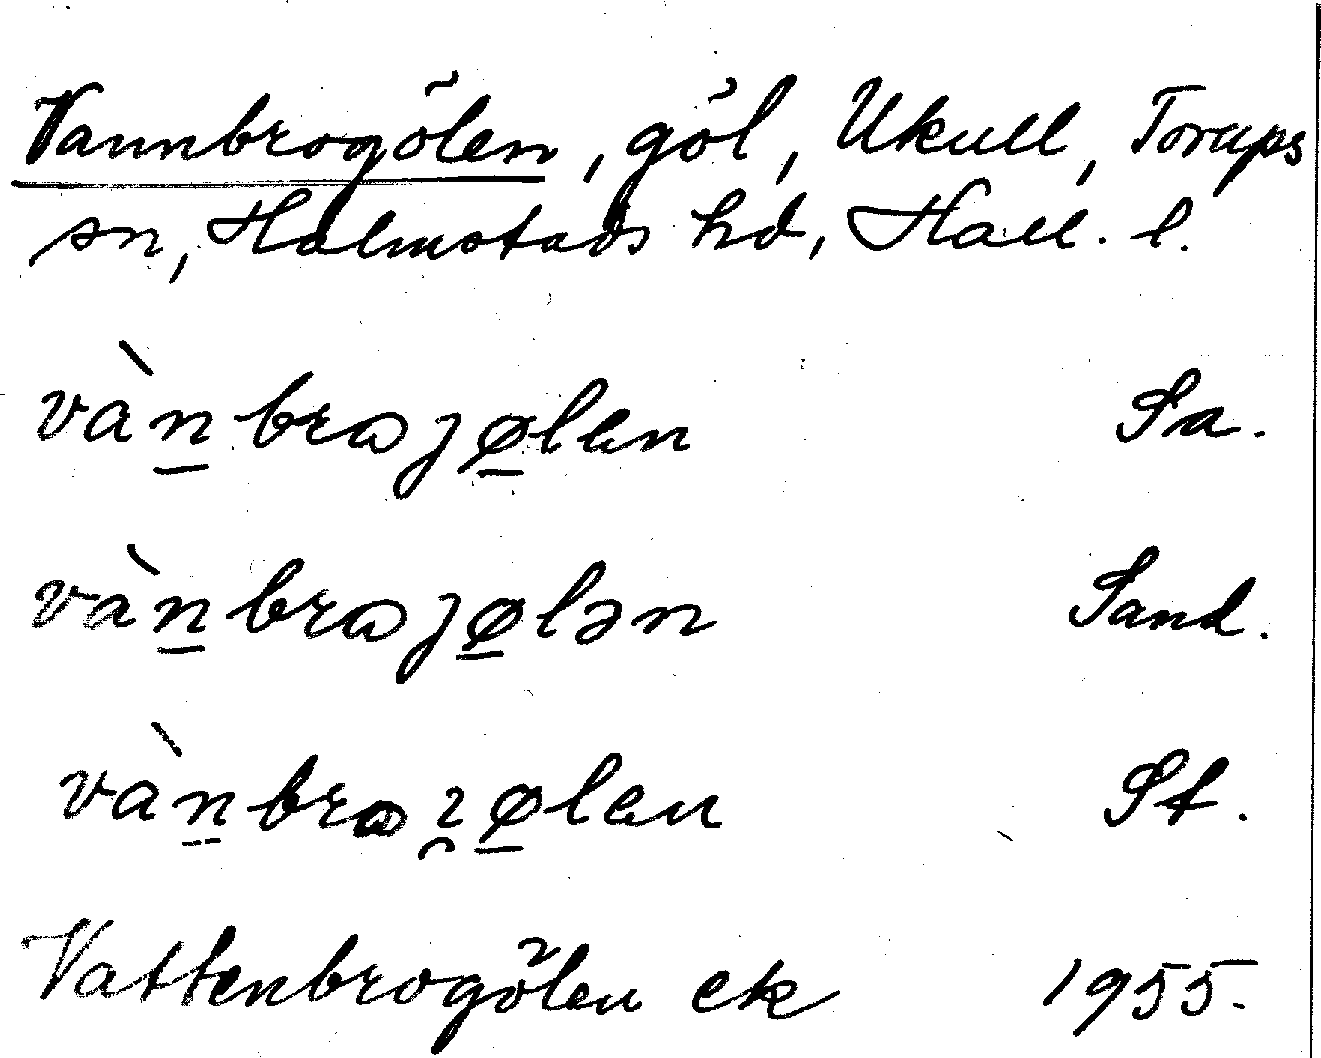 Vannbrogölen, göl, Ukull, Torups
sn, Halmstads hd, Hall. l.
và̀n̲braj̊ø̲len Sa.
vàn̲braȷø̲lən Sand.
vàn̲braȷø̲len St.
Vattenbrogölen ek 1955.